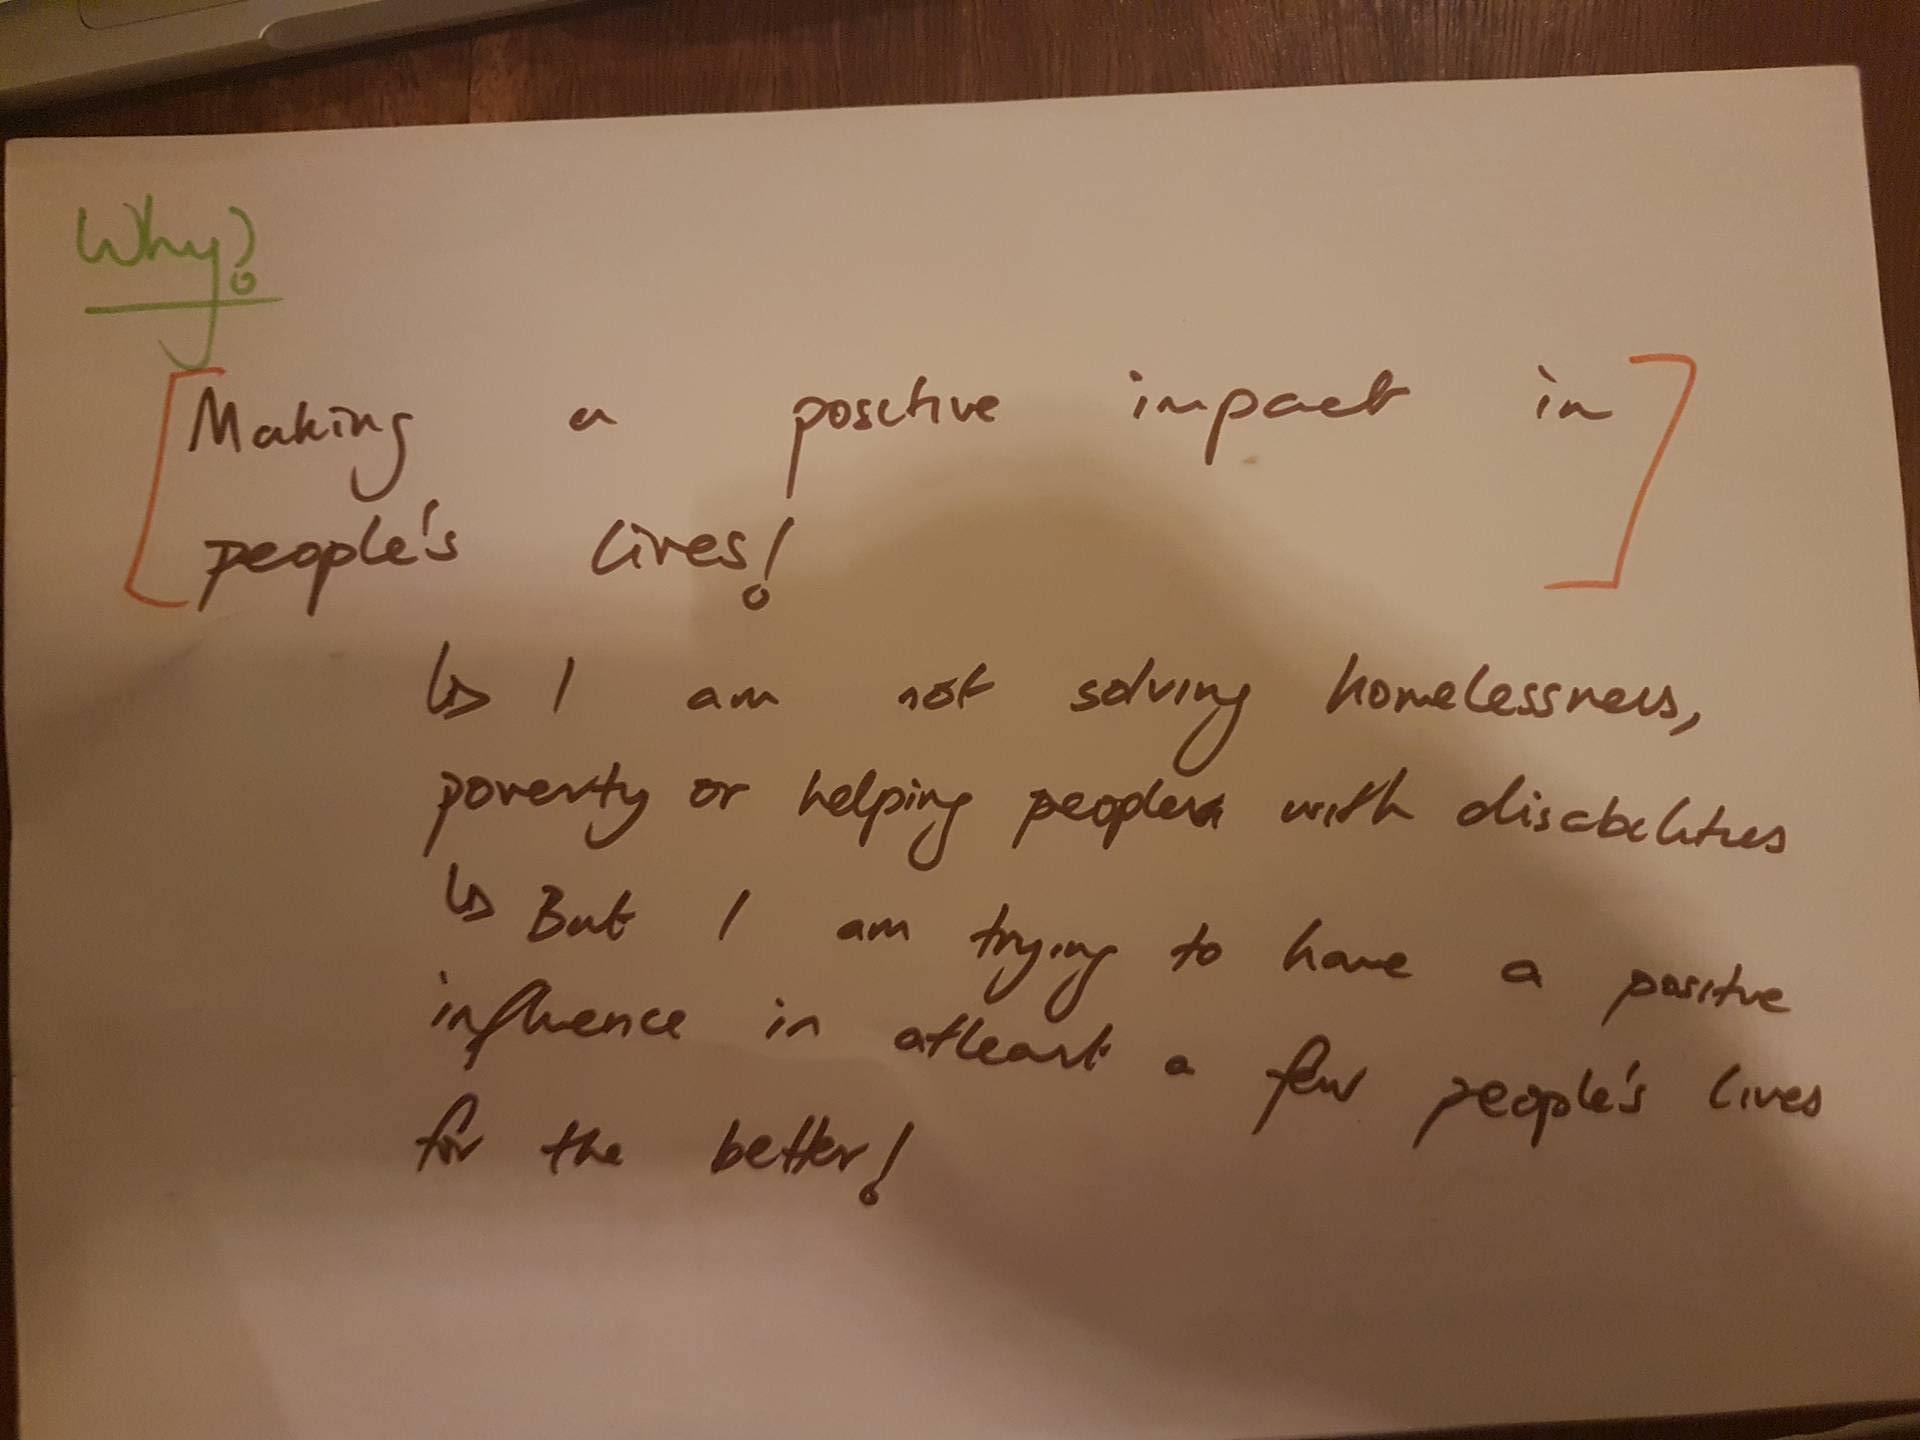 Why?
[Making a positive impact in
people's lives!]
↳ I am not solving homelessness,
poverty or helping people with disabilities
↳ But I am trying to have a positive
influence in atleast a few people's lives
for the better!